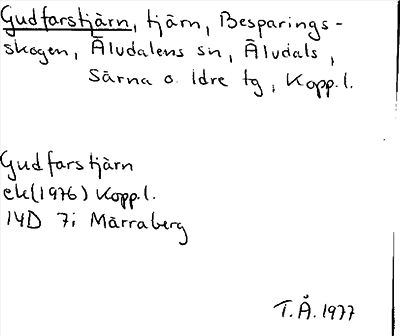 Gudfarstjärn, tjärn, Besparings-
skogen, Äludalens sn, Äludals,
Särna o. Idre tg, Kopp.l.
Gudfarstjärn
ek(1976) Kopp.l.
14D 7i Märraberg
T.Å. 1977